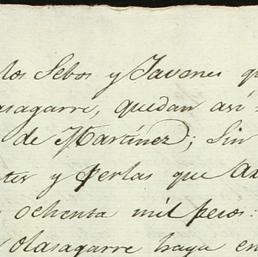 los Sebos y Javones q
lasagarre, quedan así
de Martínez; Sin
tes y perlas que
ochenta mil pesos:
olasagarre haya en